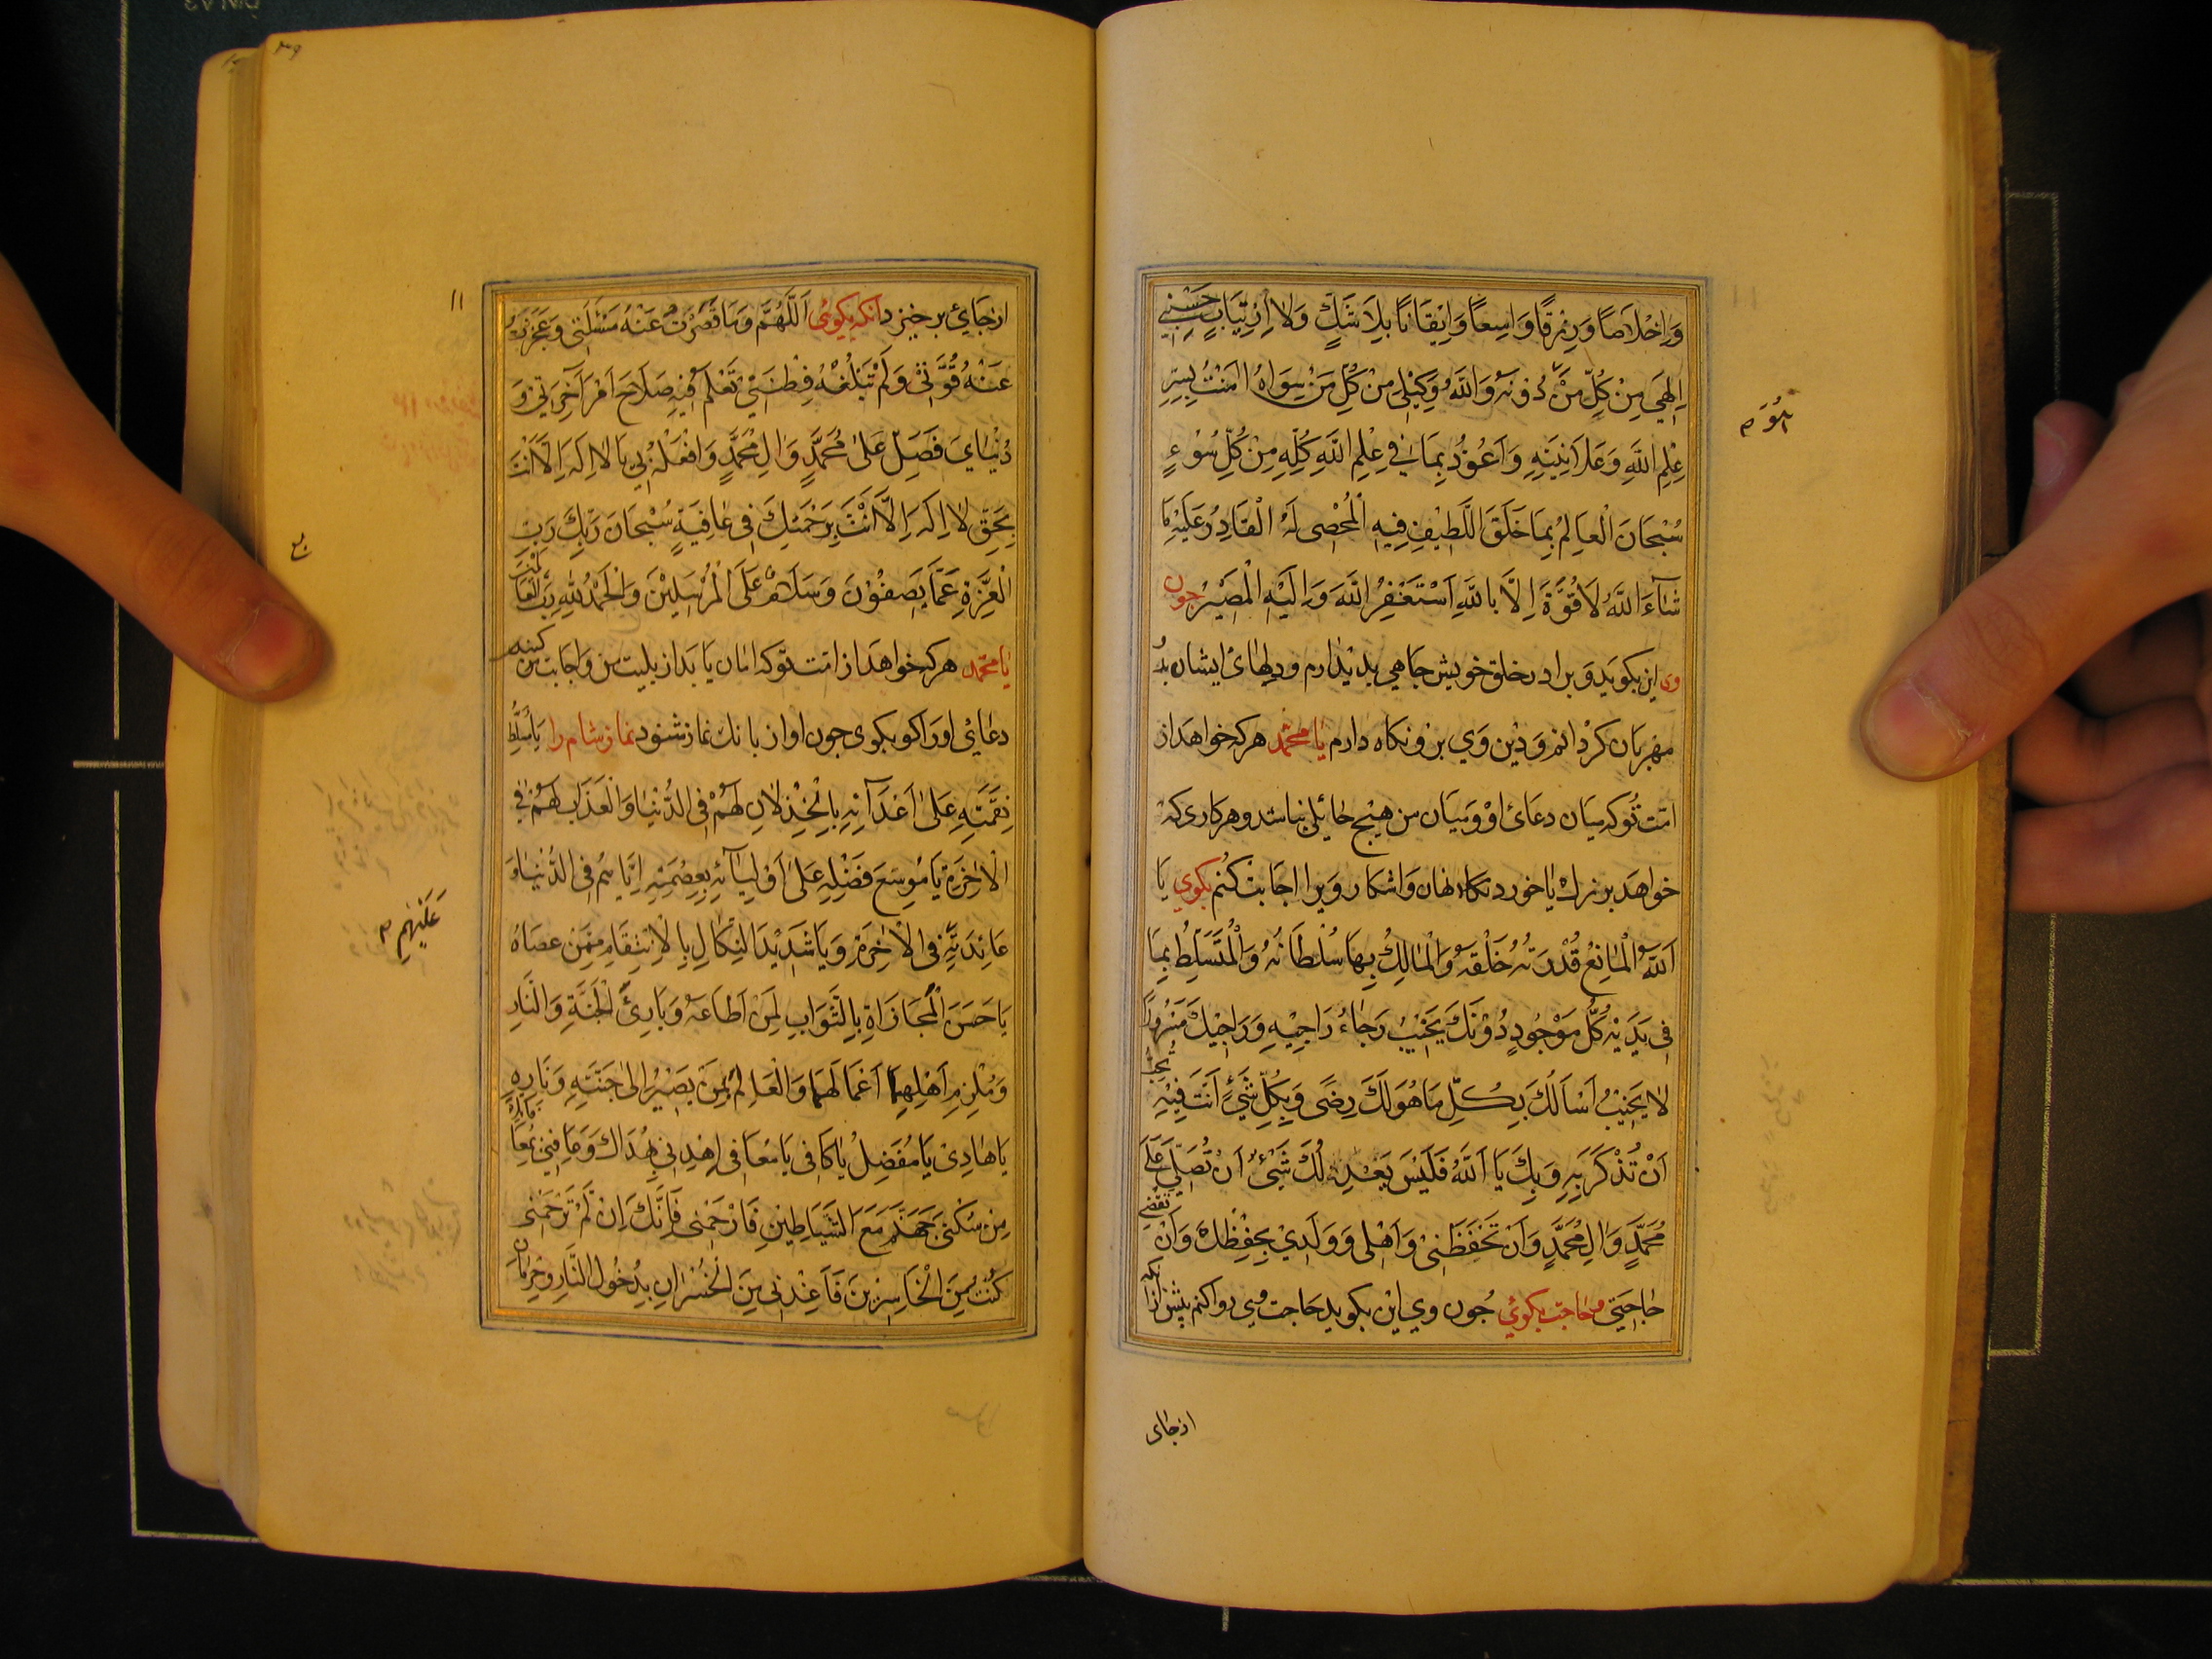 وَاِخْلَاصًا وَرِزْقًا وَاسِعًا وَاِيْقَانًا بِلَا شَكٍّ وَلَا اِرْتِيَابٍ حَسْبِيْ
اِلٰهِي مِنْ كُلِّ مَنْ دُونَهُ وَاللّٰهُ وَكِيْلِي مِنْ كُلِّ مَنْ سِوَاهُ اٰمَنْتُ بِسِرِّ
عِلْمِ اللّٰهِ وَعَلَانِيَتِهِ وَاَعُوْذُ بِمَا فِي عِلْمِ اللّٰهِ كُلِّهِ مِنْ كُلِّ سُوْءٍ
سُبْحَانَ الْعَالِمُ بِمَا خَلَقَ اللَّطِيْفِ فِيهِ الْمُحْصِى لَهُ الْقَادِرُ عَلَيْهِ مَا
شَآءَ اللّٰهُ لَا قُوَّةَ اِلَّا بِاللّٰهِ اَسْتَغْفِرُ اللّٰهَ وَاِلَيْهِ الْمَصِيْرُ چون
وى اين بكويد ويرا در خلق خويش جاهي بديد ارم و دلهائ ايشان بر
مهربان كردانم و دين وي برو نكاه دارم يا محمّد هركه خواهد از
امّت تو كه ميان دعائ او و ميان من هيچ حائلى نباشد و هر كارى كه
خواهد بزرك يا خورد نكاه نهان و اشكار ويرا اجابت كنم بكوي يا
اَللّٰهُ الْمَانِعُ قُدْرَتُهُ خَلْقَهُ وَالْمَالِكُ بِهَا سُلْطَانُهُ وَالْمُتَسَلِّطُ بِمَا
فِي يَدَيْهِ كُلُّ مَوْجُودٍ دُوْنَكَ يَخِيْبُ رَجَاءُ رَاجِيْهِ وَرَاجِيْكَ مَسْرُورًا
لَا يَخِيْبُ اَسْاَلُكَ بِكُلِّ مَا هُوَ لَكَ رِضًى وَبِكُلِّ شَيْءٍ اَنْتَ فِيْهِ تُحِبُّ
اَنْ تُذْكَرَ بِهِ وَبِكَ يَا اَللّٰهُ فَلَيْسَ يَعْدِلُكَ شَيْءٌ اَنْ تُصَلِّيَ عَلَى
مُحَمَّدٍ وَاٰلِ مُحَمَّدٍ وَاَنْ تَحْفَظَنِيْ وَاَهْلِى وَوَلَدِيْ بِحِفْظِكَ وَاَنْ تَقْضِيَ
حَاجَتِيْ حاجت بكوئي چون وي اين بكويد حاجت وي روا كنم پيش از انكه
از جاى
ازجاي برخيزد انكه بكوئى اَللّٰهُمَّ وَمَا قَصُرَتْ عَنْهُ مَسْئَلَتِي وَعَجَزَتْ
عَنْهُ قُوَّتِيْ وَلَمْ تَبْلُغْهُ فِطْنَتِيْ تَعْلَمُ فِيْهِ صَلَاحَ اَمْرِ اٰخِرَتِي وَ
دُنْيَايَ فَصَلِّ عَلَى مُحَمَّدٍ وَاٰلِ مُحَمَّدٍ وَافْعَلْهُ بِي يَا لَا اِلٰهَ اِلَّا اَنْتَ
بِحَقِّ لَا اِلٰهَ اِلَّا اَنْتَ بِرَحْمَتِكَ فِي عَافِيَةٍ سُبْحَانَ رَبِّكَ رَبِّ
الْعِزَّةِ عَمَّا يَصِفُوْنَ وَسَلَامٌ عَلَى الْمُرْسَلِيْنَ وَالْحَمْدُ لِلّٰهِ رَبِّ الْعَالَمِيْنَ
يا محمّد هركه خواهد از امّت تو كه امان يابد از بليت من و اجابت كنم
دعائ او را كو بكوى چون اواز بانك نماز شنود نماز شام را يَا مُسَلِّطَ
نِقْمَتِهِ عَلَى اَعْدَآئِهِ بِالْخِذْلَانِ لَهُمْ فِي الدُّنْيَا وَالْعَذَابِ لَهُمْ فِي
الْاٰخِرَةِ يَا مُوسِعَ فَضْلِهِ عَلَى اَوْلِيَآئِهِ بِعِصْمَتِهِ اِيَّاهُمْ فِي الدُّنْيَا وَ
عَائِدَتِهِ فِي الْاٰخِرَةِ وَيَا شَدِيْدَ النَّكَالِ بِالْاِنْتِقَامِ مِمَّنْ عَصَاهُ
عَلَيْهِمْ
يَا حَسَنَ الْمُجَازَاةِ بِالثَّوَابِ لِمَنْ اَطَاعَهُ وَبَارِئَ الْجَنَّةِ وَالنَّارِ
وَمُلْزِمَ اَهْلِهِمَا اَعْمَالَهُمَا وَالْعَالِمُ بِمَنْ يَصِيْرُ اِلَى جَنَّتِهِ وَنَارِهِ
يَا هَادِى يَا مُفَضِلُ يَا كَافِى يَا مُعَافِى اِهْدِنِي بِهُدَاكَ وَعَافِنِي بِمُعَافَاتِكَ
مِنْ سُكْنَى جَهَنَّمَ مَعَ الشَّيَاطِيْنِ فَارْحَمْنِى فَاِنَّكَ اِنْ لَمْ تَرْحَمْنِى
كُنْتُ مِنَ الْخَاسِرِيْنَ فَاَعِذْنِى مِنَ الْخُسْرَانِ بِدُخُولِ النَّارِ وَحِرْمَانِ